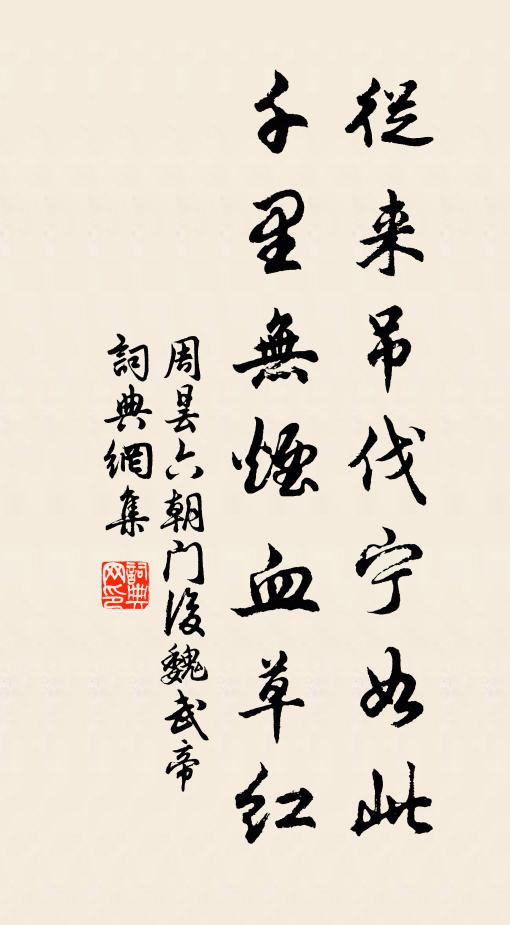 從来吊伐宁如此
千里無煙血草紅
周昙六朝门後魏武帝
詞典網集
詞典
网印